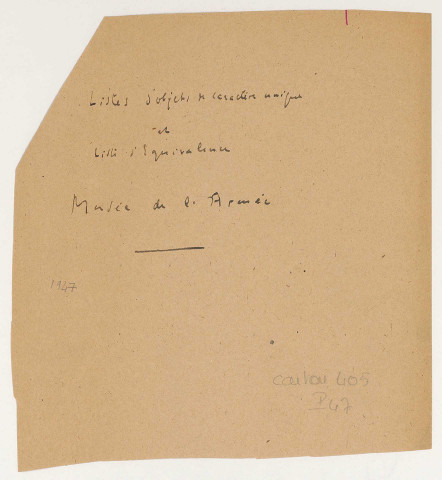 Listes d'objets de caractère unique
et
liste d'équivalence
Musée de l'Armée
1947
carton 405
P 47